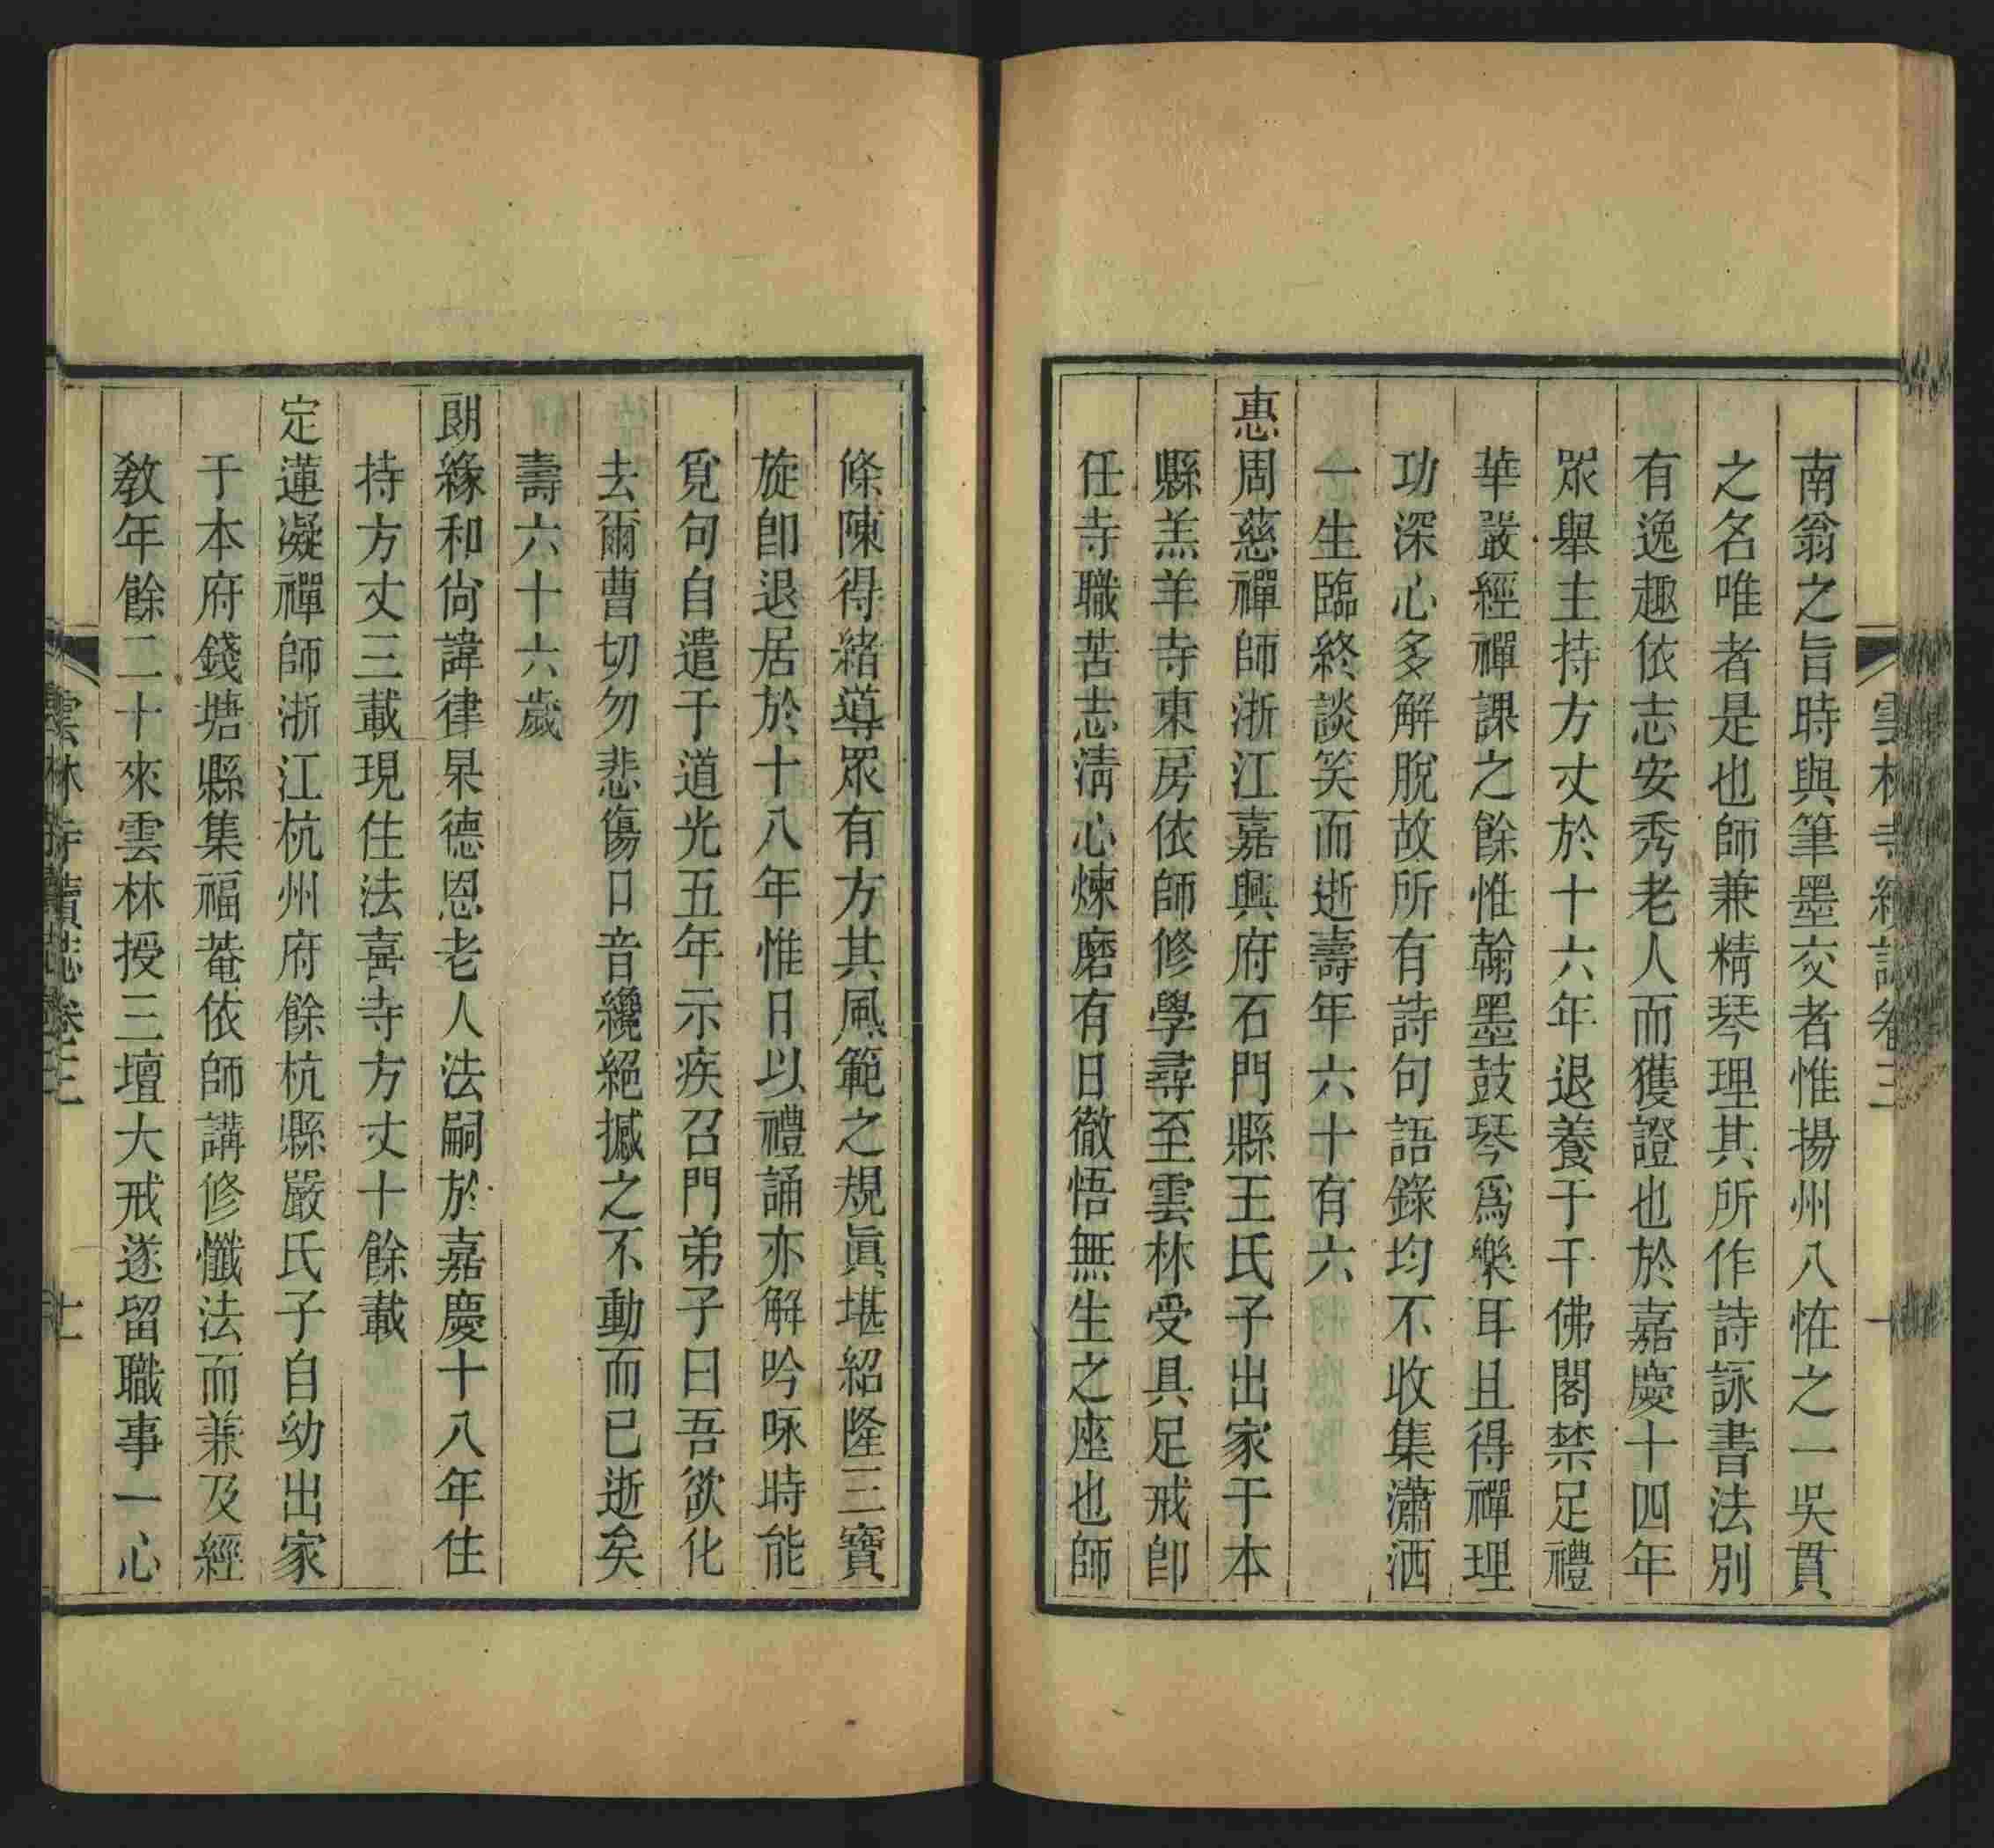 雲林寺續誌卷三
南翁之旨時與筆墨交者惟揚州八恠之一吳貫
之名唯者是也師兼精琴理其所作詩詠書法別
有逸趣依志安秀老人而獲證也於嘉慶十四年
眾舉主持方丈於十六年退養于千佛閣禁足禮
華嚴經禪課之餘惟翰墨鼓琴爲樂耳且得禪理
功深心多解脫故所有詩句語錄均不收集瀟洒
一生臨終談笑而逝壽年六十有六
惠周慈禪師浙江嘉興府石門縣王氏子出家于本
縣羔羊寺東房依師修學尋至雲林受具足戒卽
任寺職苦志淸心煉磨有日徹悟無生之座也師
條陳得緒導眾有方其風範之規眞堪紹隆三寶
旋卽退居於十八年惟日以禮誦亦解吟咏時能
覓句自遣于道光五年示疾召門弟子曰吾欲化
去爾曹切勿悲傷口音纔絕撼之不動而已逝矣
壽六十六歲
朗緣和尙諱律杲德恩老人法嗣於嘉慶十八年住
持方丈三載現住法喜寺方丈十餘載
定蓮凝禪師浙江杭州府餘杭縣嚴氏子自幼出家
于本府錢塘縣集福菴依師講修懺法而兼及經
敎年餘二十來雲林授三壇大戒遂留職事一心
雲林寺續誌卷三